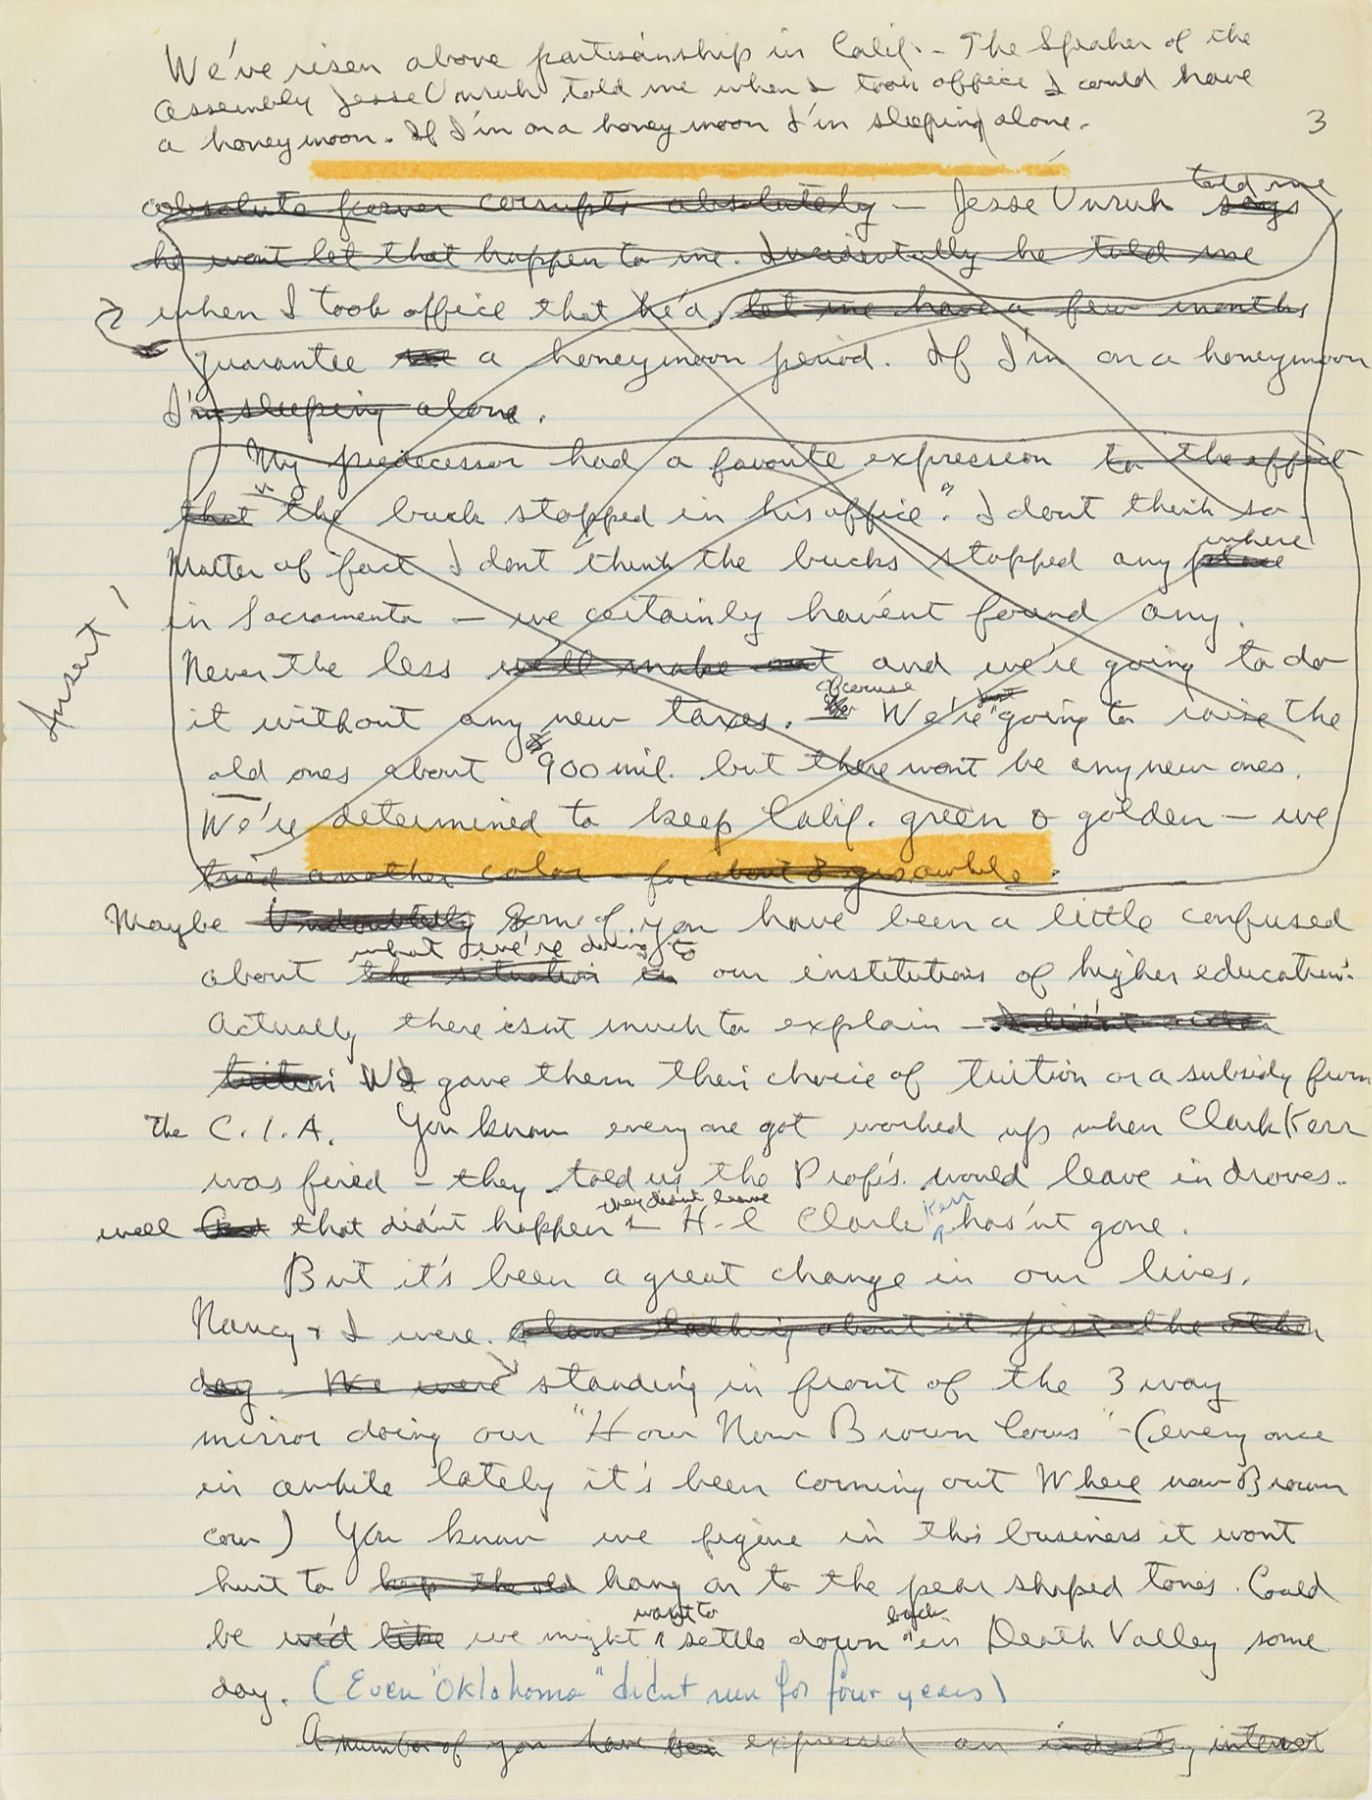 We've risen above partisanship in Calif. - The Speaker of the
Assembly Jesse Unruh told me when I took office I could have
a honeymoon. If I'm on a honey moon I'm sleeping alone.
3
absolute power corrupts absolutely — Jesse Unruh says told me
he wont let that happen to me. Incidentally he told me
when I took office that he'd, let me have a few months
guarantee me a honeymoon period. If I'm on a honeymoon
I'm sleeping alone.
My predecessor had a favorite expression to the effect
that "the buck stopped in his office". I dont think so.
Matter of fact I dont think the bucks stopped any place where
in Sacramento — we certainly haven't found any.
Insert 1
Never the less we'll make out and we're going to do
it without any new taxes. because We're going to raise the
old ones about $900 mil. but there wont be any new ones.
We're determined to keep Calif. green & golden — we
tried another color - for about 8 yrs awhile.
Maybe Undoubtedly Some of you have been a little confused
about the situation in what we're doing to our institutions of higher education.
Actually there isnt much to explain — I didn't
tuition We gave them their choice of tuition or a subsidy from
The C.I.A. You know every one got worked up when Clark Kerr
was fired - they told us the Profs. would leave in droves.
well And that didn't happen they didn't leave — H-l Clark Kerr has'nt gone.
But it's been a great change in our lives.
Nancy + I were alone talking about it just the other
day. We were standing in front of the 3 way
mirror doing our "How Now Brown Cows" - (every once
in awhile lately it's been coming out Where now Brown
cow) You know we figure in this business it wont
hurt to keep the old hang on to the pear shaped tones. Could
be we'd like we might want to settle down back in Death Valley some
day. (Even "Oklahoma" didnt run for four years)
A number of you have been expressed an interest